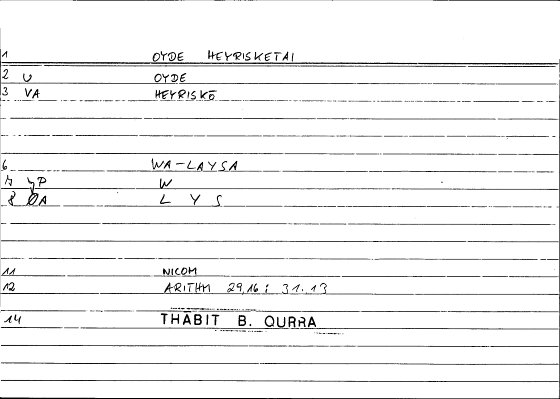 1 OYDE HEYRISKETAI
2 U OYDE
3 VA HEYRISKŌ
6 WA-LAYSA
7 YP W
8 ØA L Y S
11 NICOM
12 ARITHM 29,16 ; 31.13
14 THABIT B. QURRA